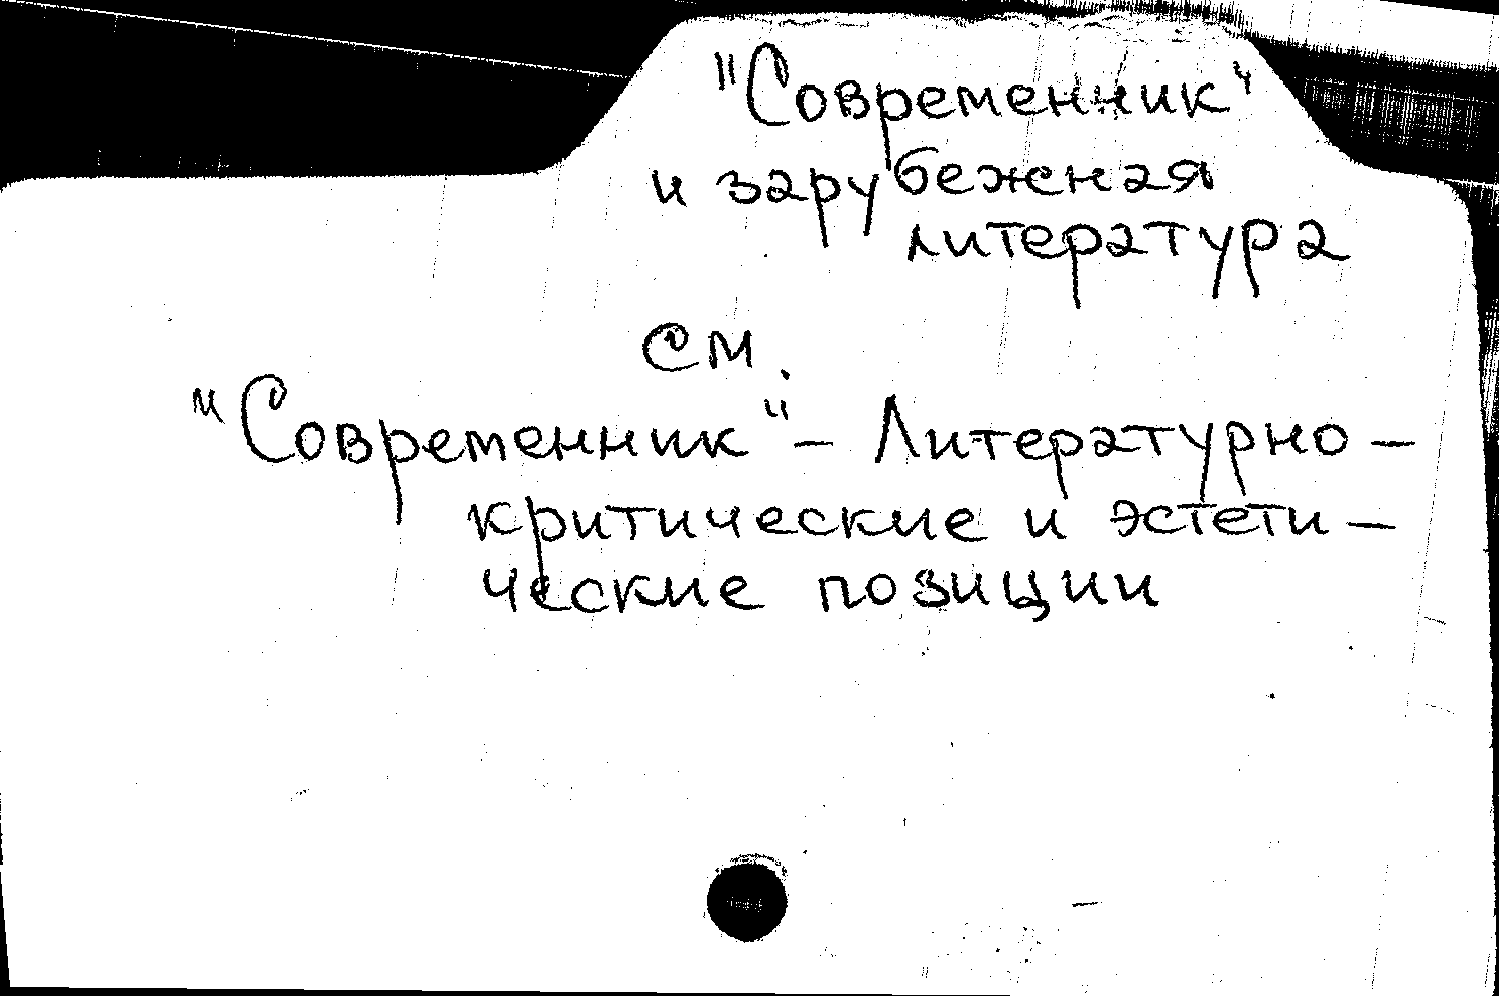 "Современник"
и зарубежная
литература
см.
"Современник" – Литературно-
критические и эстети-
ческие позиции